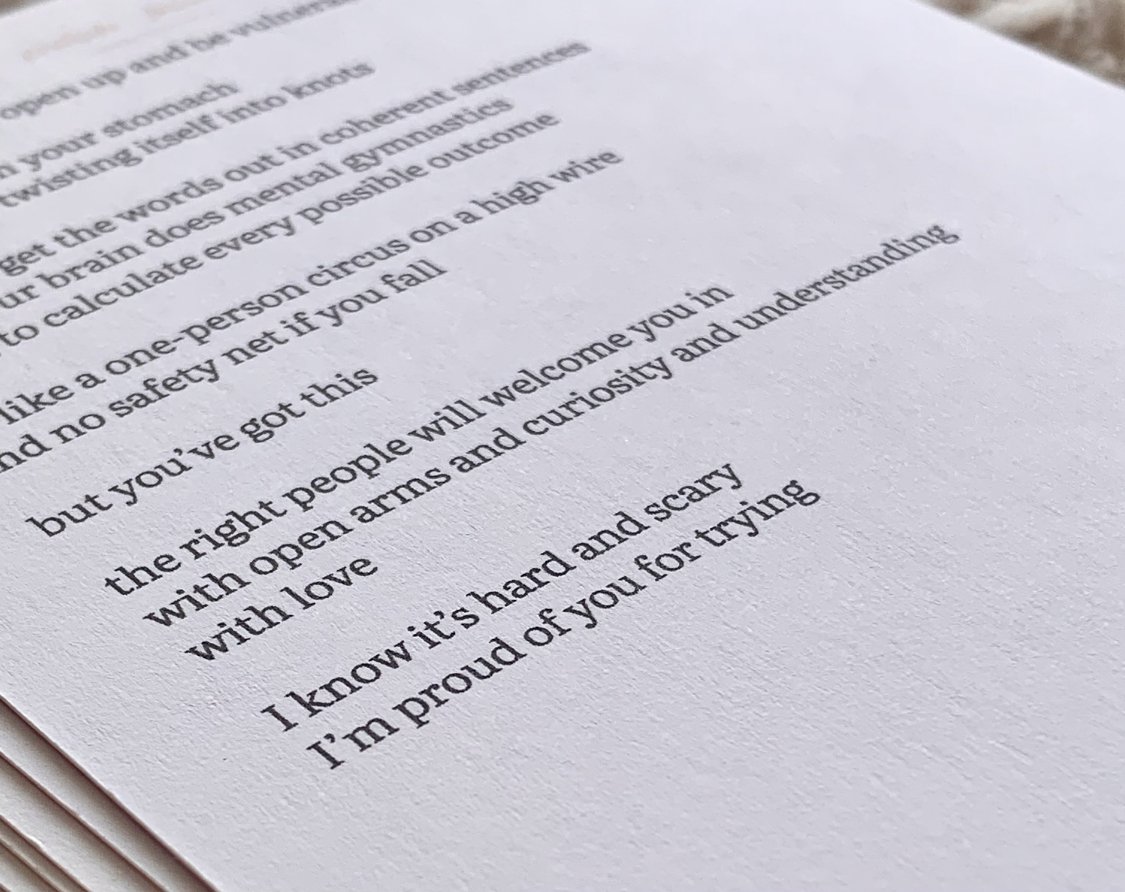 open up and be
your stomach
twisting itself into knots
get the words out in coherent sentences
ur brain does mental gymnastics
to calculate every possible outcome
like a one-person circus on a high wire
nd no safety net if you fall
but you've got this
the right people will welcome you in
with open arms and curiosity and understanding
with love
I know it's hard and scary
I'm proud of you for trying